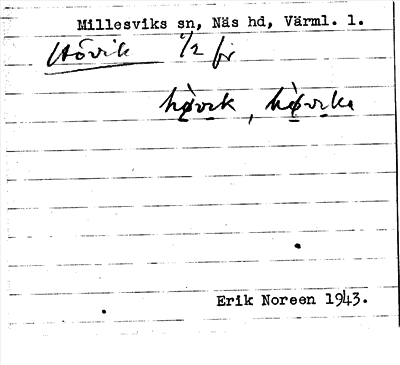 Millesviks sn, Näs hd, Värml. l.
Hövik 1/2 fr
hø̀vɪk, hø̀vɪka
Erik Noreen 1943.